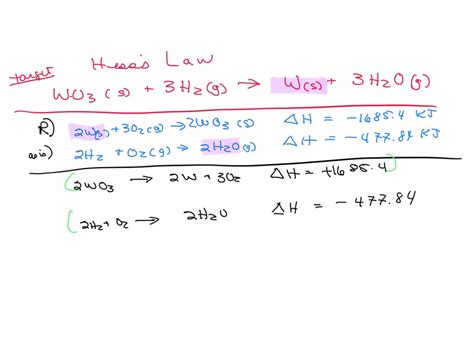 Hess's Law
target WO₃(s) + 3H₂(g) → W(s) + 3H₂O(g)
R) 2W(s) + 3O₂(g) → 2WO₃(s) ΔH = -1685.4 KJ
as is) 2H₂ + O₂(g) → 2H₂O(g) ΔH = -477.84 KJ
(2WO₃ → 2W + 3O₂ ΔH = +1685.4)
(2H₂ + O₂ → 2H₂O ΔH = -477.84